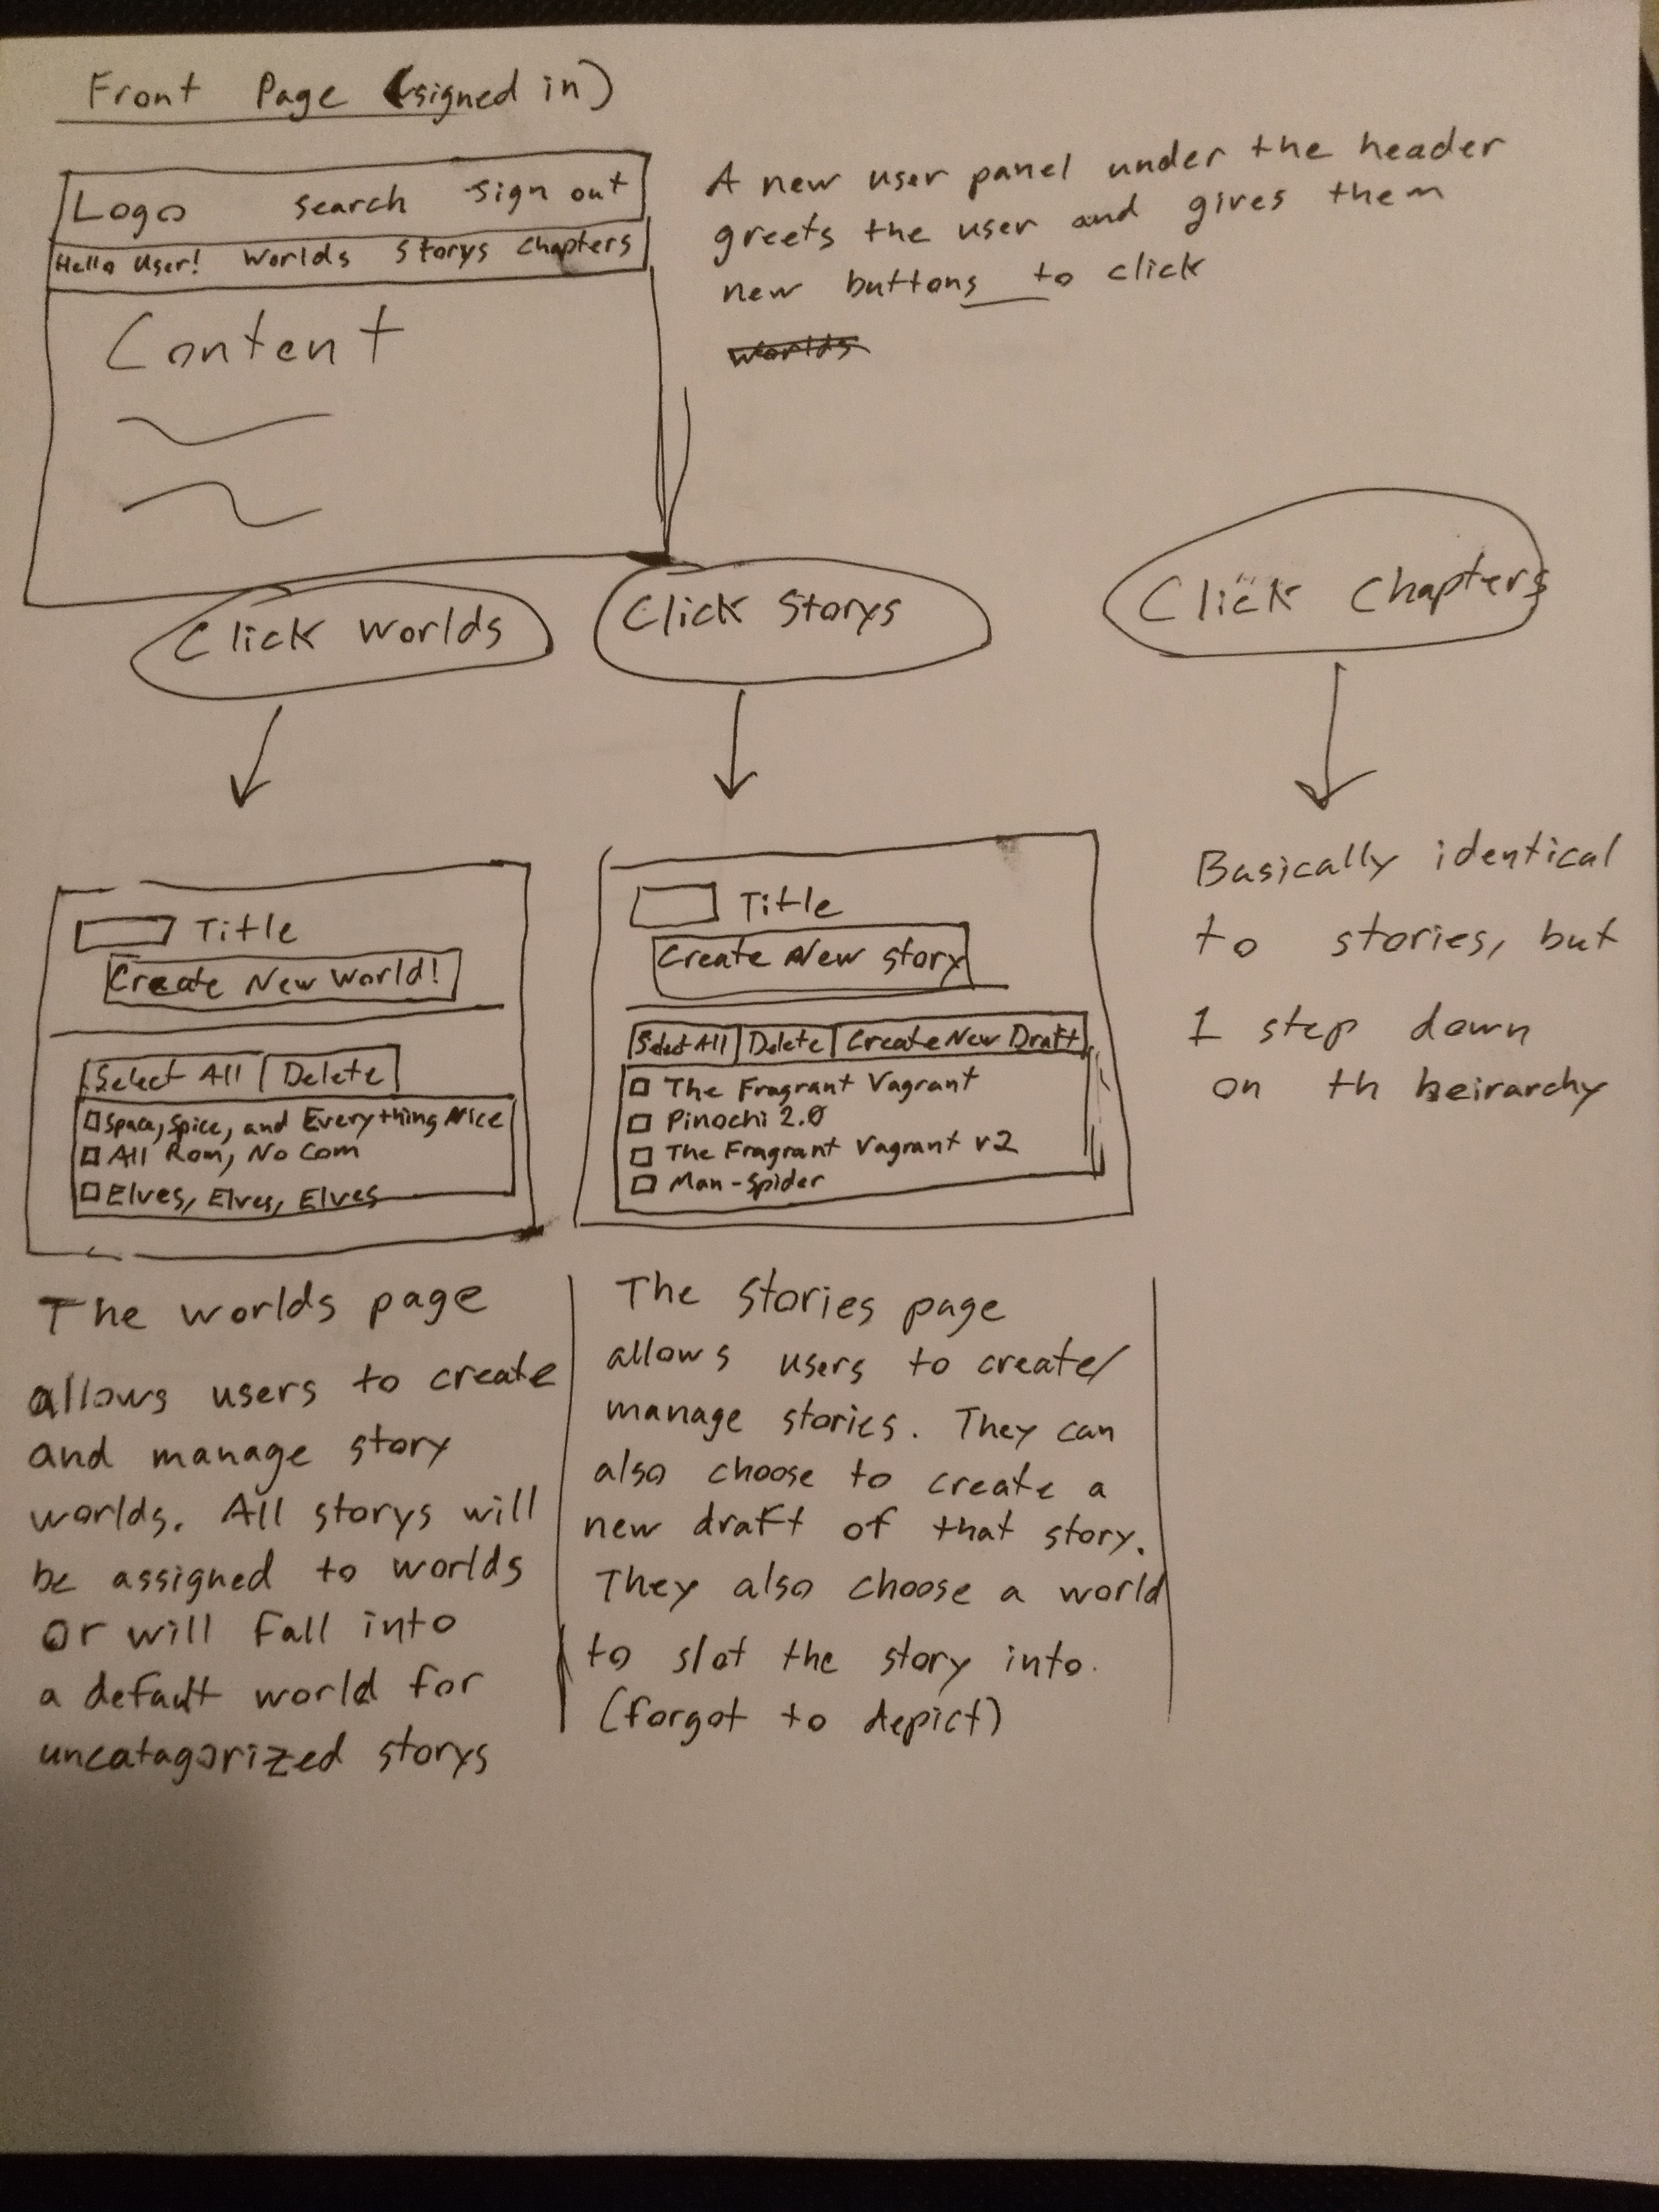 Front Page (signed in)
Logo search sign out
Hello User! Worlds Storys Chapters
Content
A new user panel under the header
greets the user and gives them
new buttons to click
worlds
Click Worlds
Click Storys
Click Chapters
Title
Create New World!
Select All Delete
Space, Spice, and Everything Nice
All Rom, No Com
Elves, Elves, Elves
Title
Create New story
Select All Delete Create New Draft
The Fragrant Vagrant
Pinochi 2.0
The Fragrant Vagrant v2
Man-Spider
Basically identical
to stories, but
1 step down
on th heirarchy
The worlds page
allows users to create
and manage story
worlds. All storys will
be assigned to worlds
or will fall into
a default world for
uncatagorized storys
The stories page
allows users to create/
manage stories. They can
also choose to create a
new draft of that story.
They also choose a world
to slot the story into.
(forgot to depict)